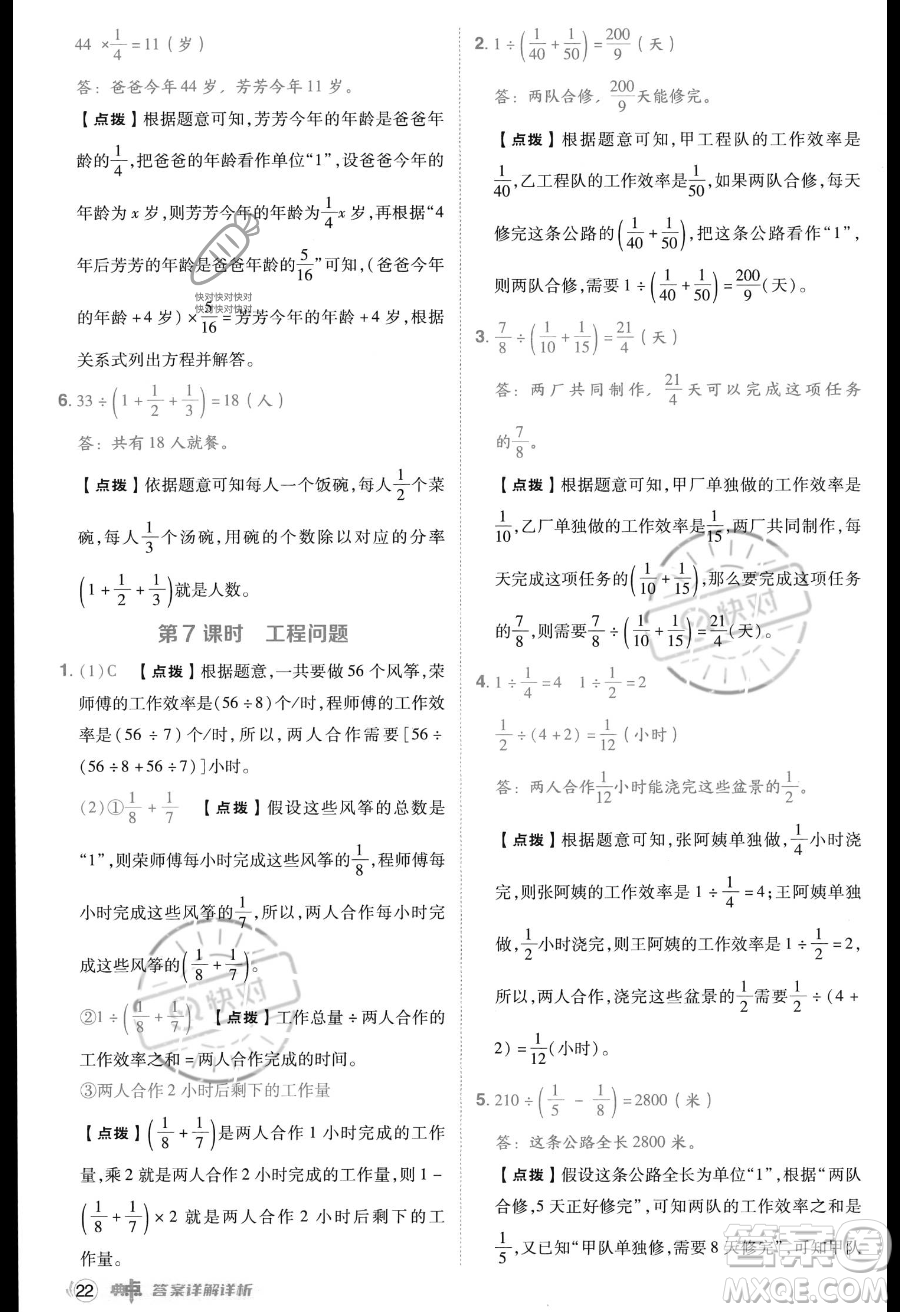 44 ×1/4=11(岁)
答：爸爸今年 44 岁，芳芳今年 11 岁。
【点拨】根据题意可知，芳芳今年的年龄是爸爸年
龄的1/4，把爸爸的年龄看作单位“1”，设爸爸今年的
年龄为 x 岁，则芳芳今年的年龄为1/4x 岁，再根据“4
年后芳芳的年龄是爸爸年龄的5/16”可知，(爸爸今年
快对快对快对
快对快对快对
的年龄+4 岁)×5/16=芳芳今年的年龄+4 岁，根据
关系式列出方程并解答。
6. 33÷(1+1/2+1/3)=18(人)
答：共有 18 人就餐。
【点拨】依据题意可知每人一个饭碗，每人1/2个菜
碗，每人1/3个汤碗，用碗的个数除以对应的分率
(1+1/2+1/3)就是人数。
第 7 课时 工程问题
1. (1)C 【点拨】根据题意，一共要做 56 个风筝，荣
师傅的工作效率是(56÷8)个/时，程师傅的工作效
率是(56÷7)个/时，所以，两人合作需要[56÷
(56÷8+56÷7)]小时。
(2)①1/8+1/7 【点拨】假设这些风筝的总数是
“1”，则荣师傅每小时完成这些风筝的1/8，程师傅每
小时完成这些风筝的1/7，所以，两人合作每小时完
成这些风筝的(1/8+1/7)。
②1÷(1/8+1/7) 【点拨】工作总量÷两人合作的
工作效率之和=两人合作完成的时间。
③两人合作 2 小时后剩下的工作量
【点拨】(1/8+1/7)是两人合作 1 小时完成的工作
量，乘 2 就是两人合作 2 小时完成的工作量，则 1-
(1/8+1/7)×2 就是两人合作 2 小时后剩下的工
作量。
22 典中点 答案详解详析
2. 1÷(1/40+1/50)=200/9(天)
答：两队合修，200/9天能修完。
【点拨】根据题意可知，甲工程队的工作效率是
1/40，乙工程队的工作效率是1/50，如果两队合修，每天
修完这条公路的(1/40+1/50)，把这条公路看作“1”，
则两队合修，需要 1÷(1/40+1/50)=200/9(天)。
3. 7/8÷(1/10+1/15)=21/4(天)
答：两厂共同制作，21/4天可以完成这项任务
的7/8。
【点拨】根据题意可知，甲厂单独做的工作效率是
1/10，乙厂单独做的工作效率是1/15，两厂共同制作，每
天完成这项任务的(1/10+1/15)，那么要完成这项任务
的7/8，需要 7/8÷(1/10+1/15)=21/4(天)。
4. 1÷1/4=4 1÷1/2=2
1/2÷(4+2)=1/12(小时)
答：两人合作1/12小时能浇完这些盆景的1/2。
【点拨】根据题意可知，张阿姨单独做，1/4小时浇
完，则张阿姨的工作效率是 1÷1/4=4；王阿姨单独
做，1/2小时浇完，则王阿姨的工作效率是 1÷1/2=2，
所以，两人合作，浇完这些盆景的1/2需要1/2÷(4+
2)=1/12(小时)。
5. 210÷(1/5-1/8)=2800(米)
答：这条公路全长 2800 米。
【点拨】假设这条公路全长为单位“1”，根据“两队
合修，5 天正好修完”，可知两队的工作效率之和是
1/5，又已知“甲队单独修，需要 8 天修完”，可知甲队
快对
快对